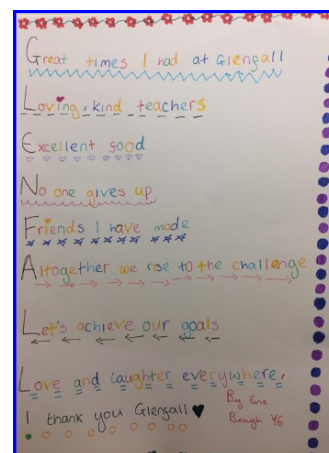 Great times I had at Glengall
Loving, kind teachers
Excellent food
No one gives up
Friends I have made
Altogether we rise to the challenge
Let's achieve our goals
Love and laughter everywhere,
I thank you Glengall
By
Y6